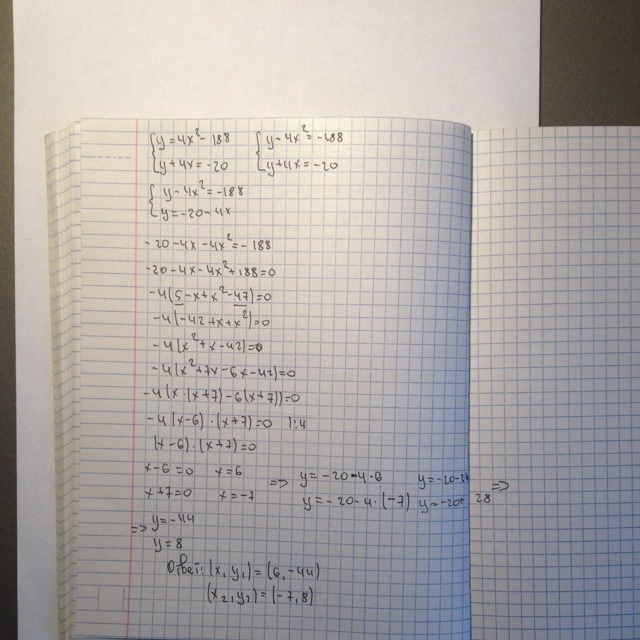 { y = 4x² - 188 { y - 4x² = -188
{ y + 4x = -20 { y + 4x = -20
{ y - 4x² = -188
{ y = -20 - 4x
-20 - 4x - 4x² = -188
-20 - 4x - 4x² + 188 = 0
-4(5 - x + x² - 47) = 0
-4(-42 + x + x²) = 0
-4(x² + x - 42) = 0
-4(x² + 7x - 6x - 42) = 0
-4(x·(x+7) - 6(x+7)) = 0
-4(x-6)·(x+7) = 0 |:4
(x-6)·(x+7) = 0
x - 6 = 0 x = 6 => y = -20 - 4·6 y = -20 - 24
x + 7 = 0 x = -7 y = -20 - 4·(-7) y = -20+ 28 =>
=> y = -44
y = 8
Ответ: (x₁ y₁) = (6, -44)
(x₂, y₂) = (-7, 8)